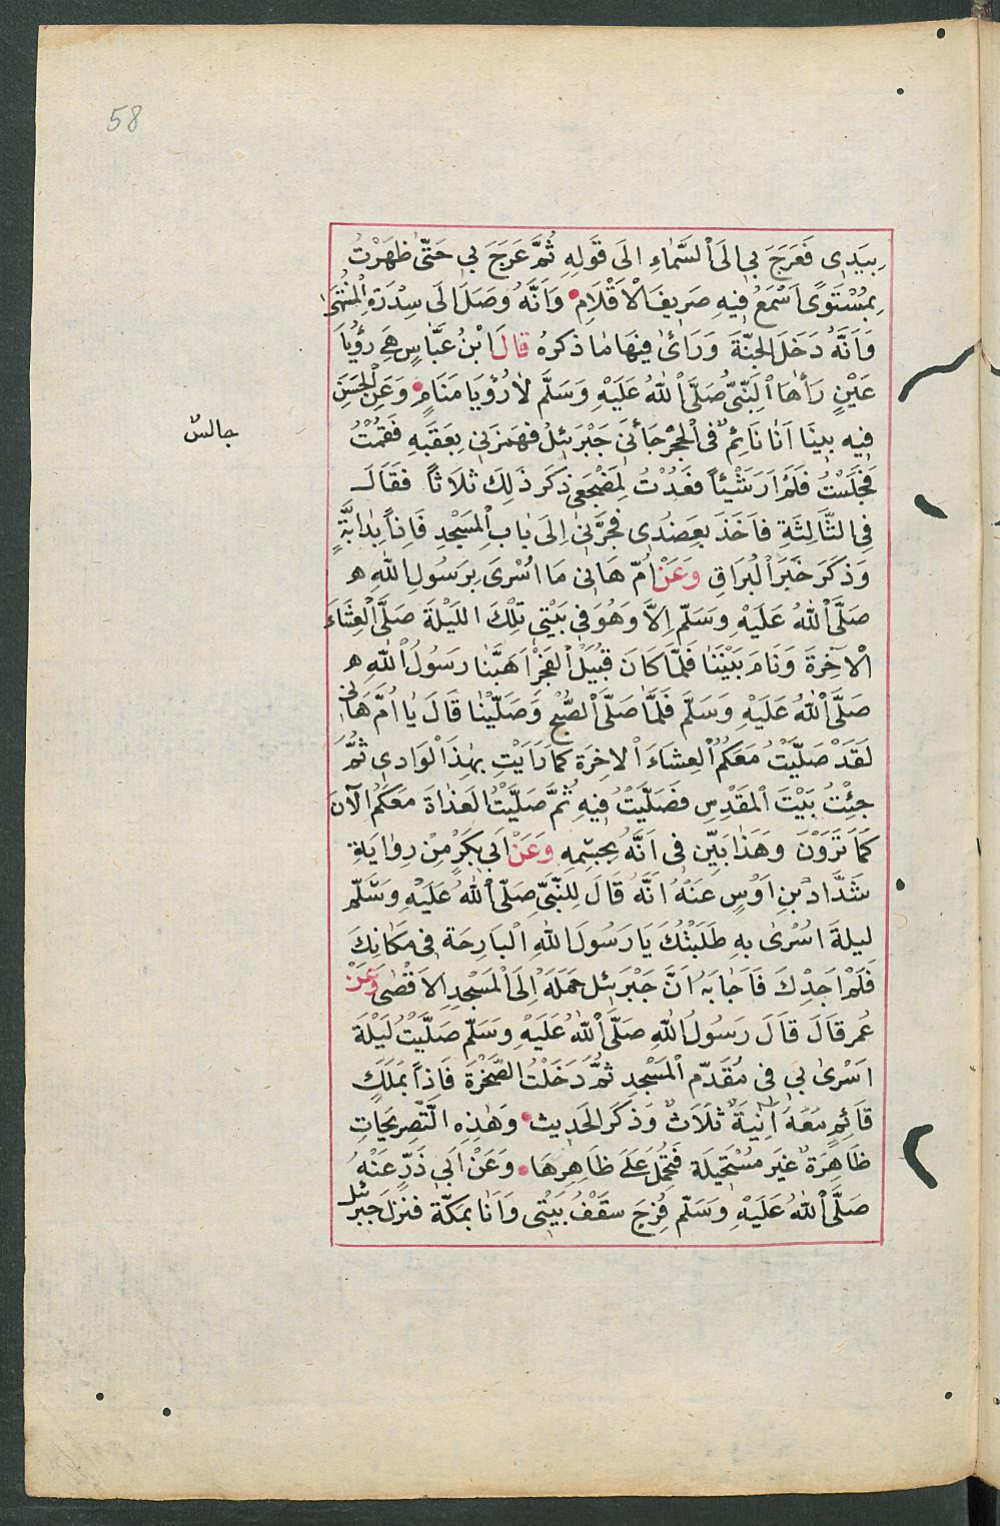 58
بِيَدِى فَعَرَجَ بِى اِلَى ٱلسَّمَاءِ اِلَى قَوْلِهِ ثُمَّ عَرَجَ بِى حَتّٰى ظَهَرْتُ
بِمُسْتَوًى اَسْمَعُ فِيهِ صَرِيفَ الْاَقْلَامِ وَاَنَّهُ وَصَلَ اِلَى سِدْرَةِ الْمُنْتَهٰى
وَاَنَّهُ دَخَلَ الْجَنَّةَ وَرَاَىٰ فِيهَا مَا ذَكَرَهُ قَالَ ابْنُ عَبَّاسٍ هِىَ رُؤْيَا
عَيْنٍ رَأٰهَا ٱلنَّبِىُّ صَلَّى ٱللّٰهُ عَلَيْهِ وَسَلَّم لَا رُؤْيَا مَنَامٍ وَعَنِ الْحَسَنِ
فِيهِ بَيْنَا اَنَا نَائِمٌ فِى الْحِجْرِ جَائَنِى جَبْرَئِلُ فَهَمَزَنِى بِعَقِبِهِ فَقُمْتُ
جالسٌ
فَجَلَسْتُ فَلَمْ اَرَ شَيْئاً فَعُدْتُ لِمَضْجَعِى ذَكَرَ ذٰلِكَ ثَلَاثاً فَقَالَ
فِى الثَّالِثَةِ فَاَخَذَ بِعَضُدِى فَجَرَّنِى اِلَى بَابِ الْمَسْجِدِ فَاِذَاً بِدَابَّةٍ
وَذَكَرَ خَبَرَ الْبُرَاقِ وَعَنْ اُمِّ هَانِى مَا اُسْرِىَ بِرَسُولِ اللّٰهِ ه
صَلَّى ٱللّٰهُ عَلَيْهِ وَسَلّم اِلَّا وَهُوَ فِى بَيْتِى تِلْكَ اللَيْلَةَ صَلَّى الْعِشَاءَ
الْاٰخِرَةَ وَنَامَ بَيْنَنَا فَلَمَّا كَانَ قُبَيْلَ الْفَجْرِ اَهَبَّنَا رَسُولُ اللّٰهِ ه
صَلَّى ٱللّٰهُ عَلَيْهِ وَسَلَّم فَلَمَّا صَلَّى الصُّبْحَ وَصَلَّيْنَا قَالَ يَا اُمَّ هَانِى
لَقَدْ صَلَّيْتُ مَعَكُمُ الْعِشَاءَ الْاخِرَةَ كَمَا رَاَيْتِ بِهٰذَا الْوَادِى ثُمَّ
جِئْتُ بَيْتَ الْمَقْدِسِ فَصَلَّيْتُ فِيهِ ثُمَّ صَلَّيْتُ الْغَدَاةَ مَعَكُمُ الْآنَ
كَمَا تَرَوْنَ وَهَذَا بَيِّن فِى اَنَّهُ بِجِسْمِهِ وَعَنْ اَبِى بَكْرٍ مِنْ رِوَايَةِ
شَدَّاد بْنِ اَوْسٍ عَنْهُ اَنَّهُ قَالَ لِلنَّبِىِّ صَلَّى ٱللّٰهُ عَلَيْهِ وَسَلَّم
لَيْلَةَ اُسْرِىَ بِهِ طَلَبْتُكَ يَا رَسُولَ اللّٰهِ الْبَارِحَةَ فِى مَكَانِكَ
فَلَمْ اَجِدْكَ فَاَجَابَهُ اَنَّ جَبْرَئِل حَمَلَهُ اِلَى الْمَسْجِدِ الْاَقْصٰى وَعَنْ
عُمَر قَالَ قَالَ رَسُولُ اللّٰهِ صَلَّى ٱللّٰهُ عَلَيْهِ وَسَلّم صَلَّيْتُ لَيْلَةَ
اُسْرِىَ بِى فِى مُقَدَّمِ الْمَسْجِدِ ثُمَّ دَخَلْتُ الصَّخْرَةَ فَاِذَاً بِمَلَكٍ
قَائِمٍ مَعَهُ اٰنِيَةٌ ثَلَاثٌ وَذَكَرَ الْحَدِيثَ وَهٰذِهِ التَّصْرِيحَاتِ
ظَاهِرَةٌ غَيْرَ مُسْتَحِيلَة فَتُحْمَلُ عَلَى ظَاهِرِهَا وَعَنْ اَبِى ذَرٍّ عَنْهُ
صَلَّى ٱللّٰهُ عَلَيْهِ وَسَلّم فُرِجَ سَقْفُ بَيْتِى وَاَنَا بِمَكَّةَ فَنَزَلَ جَبْرَئِل